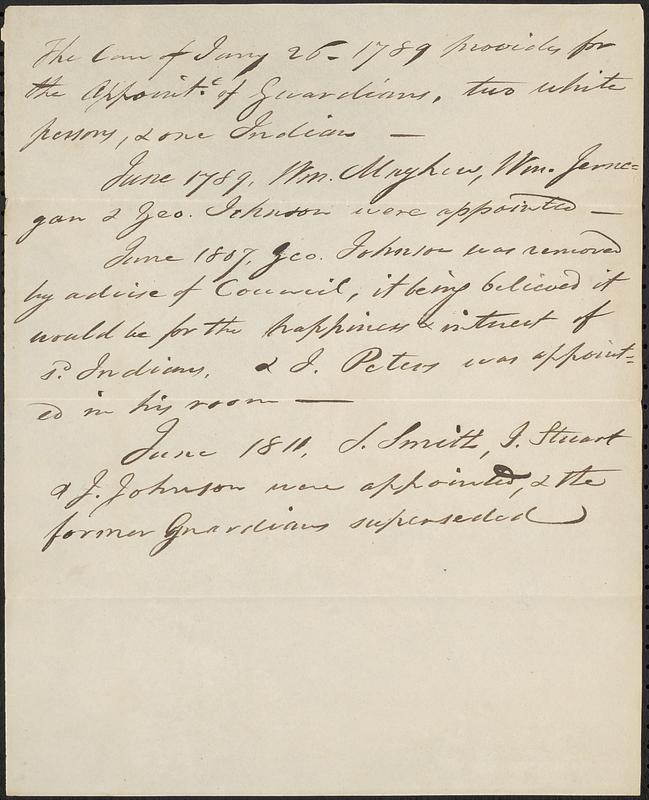 The Law of Jany 26 - 1789 provides for
the Appointt. of Guardians, two white
persons, & one Indian —
June 1789, Wm. Mayhew, Wm. Jerne=
gan & Geo. Johnson were appointed —
June 1807, Geo. Johnson was removed
by advise of Council, it being believed it
would be for the happiness & interest of
sd. Indians, & J. Peters was appoint=
ed in his room —
June 1811, S. Smith, J. Stuart
& J. Johnson were appointed, & the
former Guardians superseded